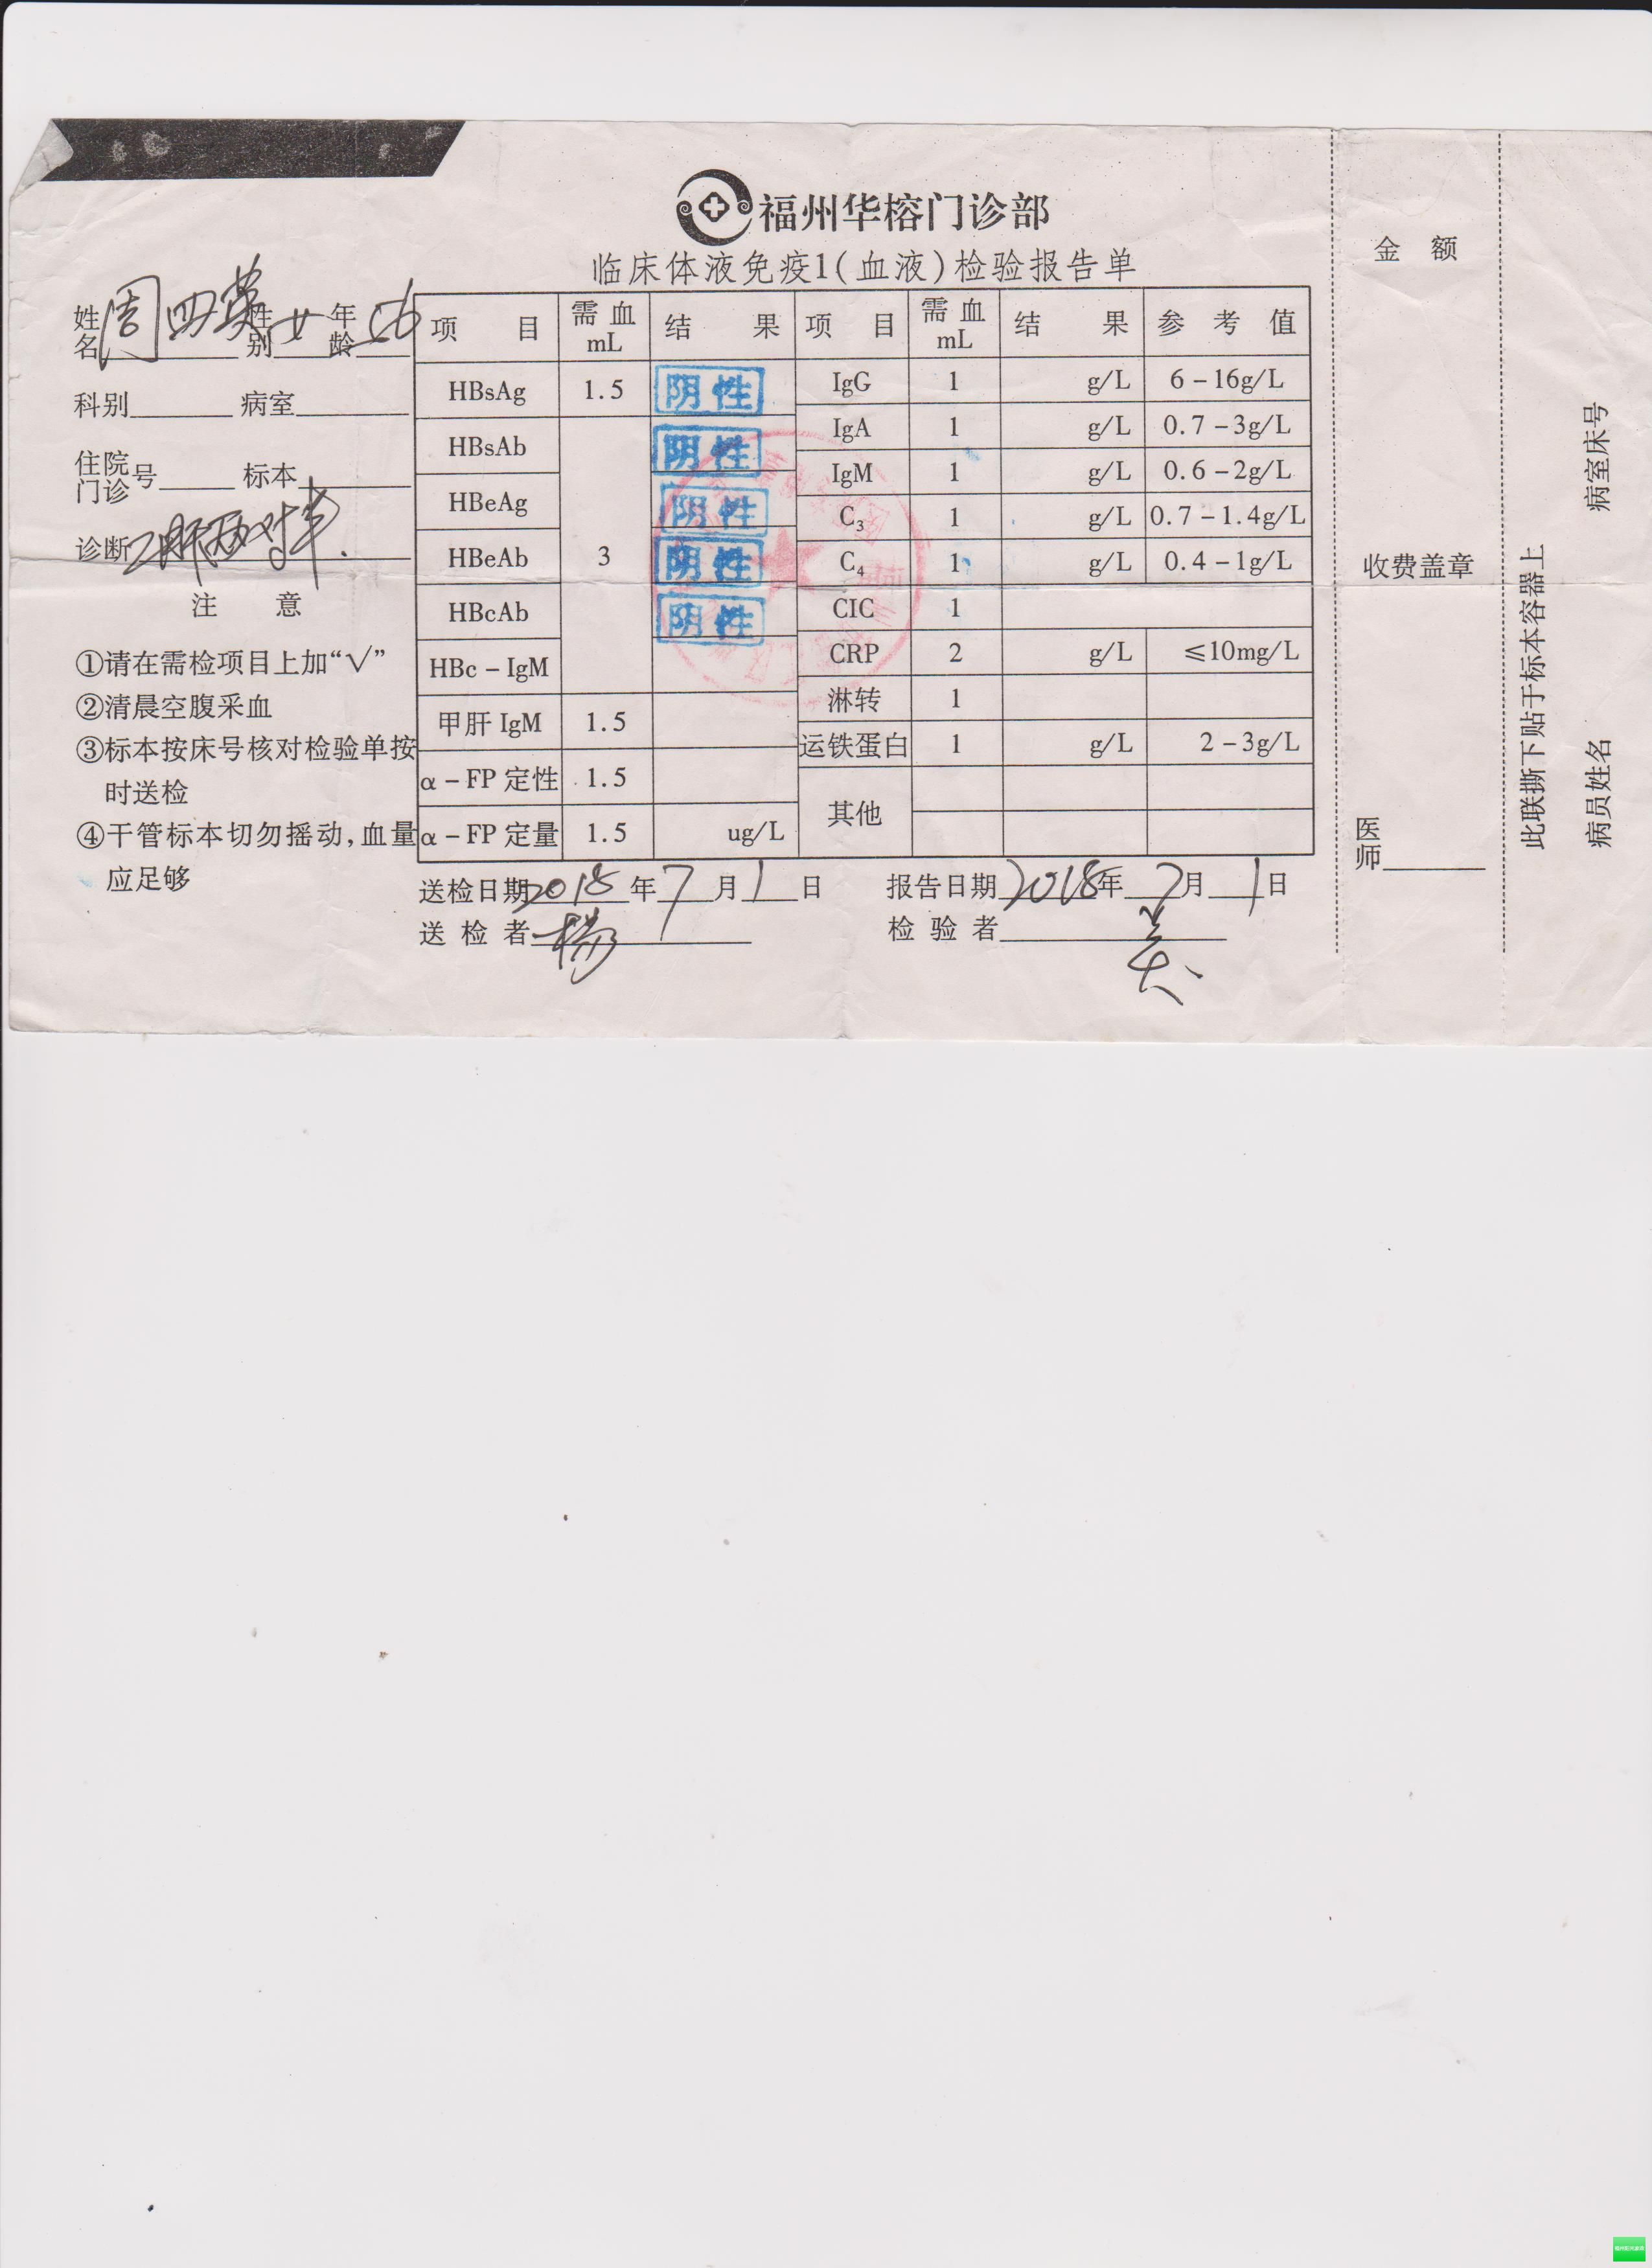 福州华榕门诊部
临床体液免疫1(血液)检验报告单
姓名 周四英 性别 女 年龄 56
科别 病室
住院门诊号 标本
诊断 乙肝两对半.
注 意
①请在需检项目上加“√”
②清晨空腹采血
③标本按床号核对检验单按
时送检
④干管标本切勿摇动,血量
应足够
项 目 需血mL 结 果 项 目 需血mL 结 果 参 考 值
HBsAg 1.5 阴性 IgG 1 g/L 6-16g/L
HBsAb 阴性 IgA 1 g/L 0.7-3g/L
HBeAg 阴性 IgM 1 g/L 0.6-2g/L
C3 1 g/L 0.7-1.4g/L
HBeAb 3 阴性 C4 1 g/L 0.4-1g/L
HBcAb 阴性 CIC 1
HBc-IgM CRP 2 g/L ≤10mg/L
甲肝 IgM 1.5 淋转 1
运铁蛋白 1 g/L 2-3g/L
α-FP 定性 1.5 其他
α-FP 定量 1.5 ug/L
送检日期 2018 年 7 月 1 日 报告日期 2018 年 7 月 1 日
送 检 者 杨 检 验 者
金 额
收费盖章
医师
此联撕下贴于标本容器上
病室床号
病员姓名